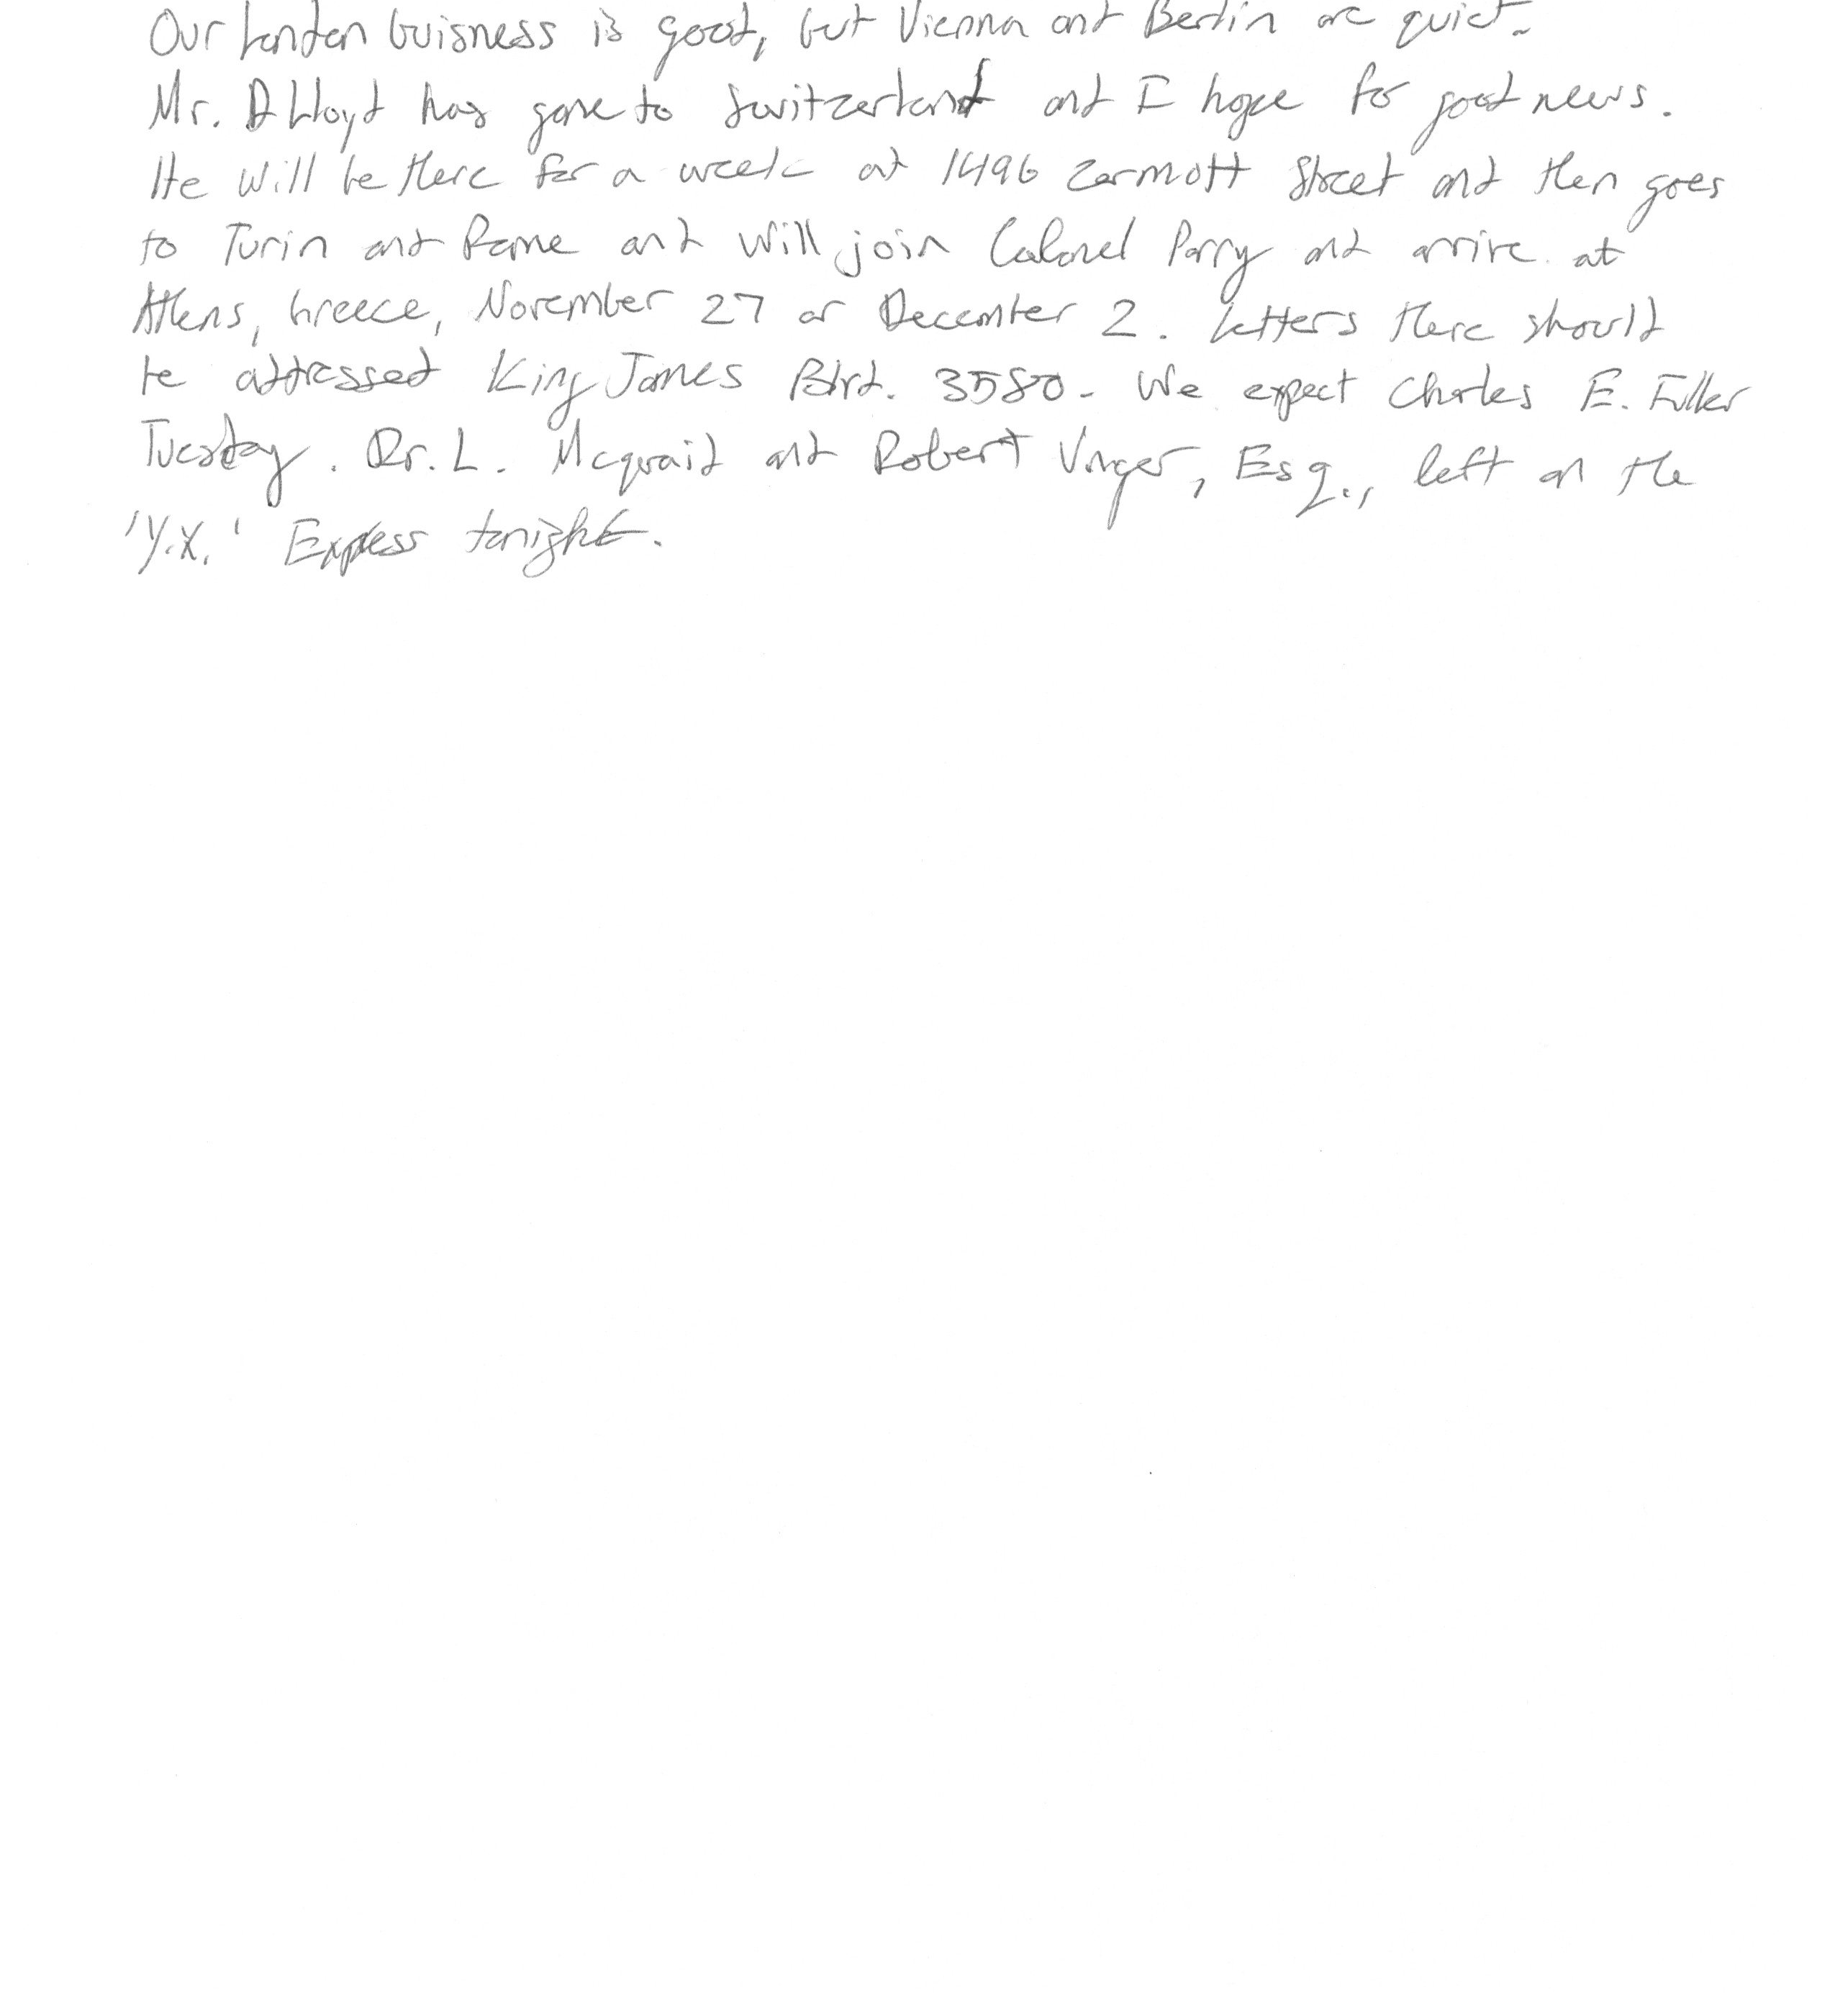 Our London buisness is good, but Vienna and Berlin are quiet.
Mr. D Lloyd has gone to Switzerland and I hope for good news.
He will be there for a week at 1496 Zermott Street and then goes
to Turin and Rome and will join Colonel Parry and arrive at
Athens, Greece, November 27 or December 2. Letters there should
be addressed King James Blvd. 3580. We expect Charles E. Fuller
Tuesday. Dr. L. Mcquaid and Robert Unger, Esq., left on the
'Y.X.' Express tonight.